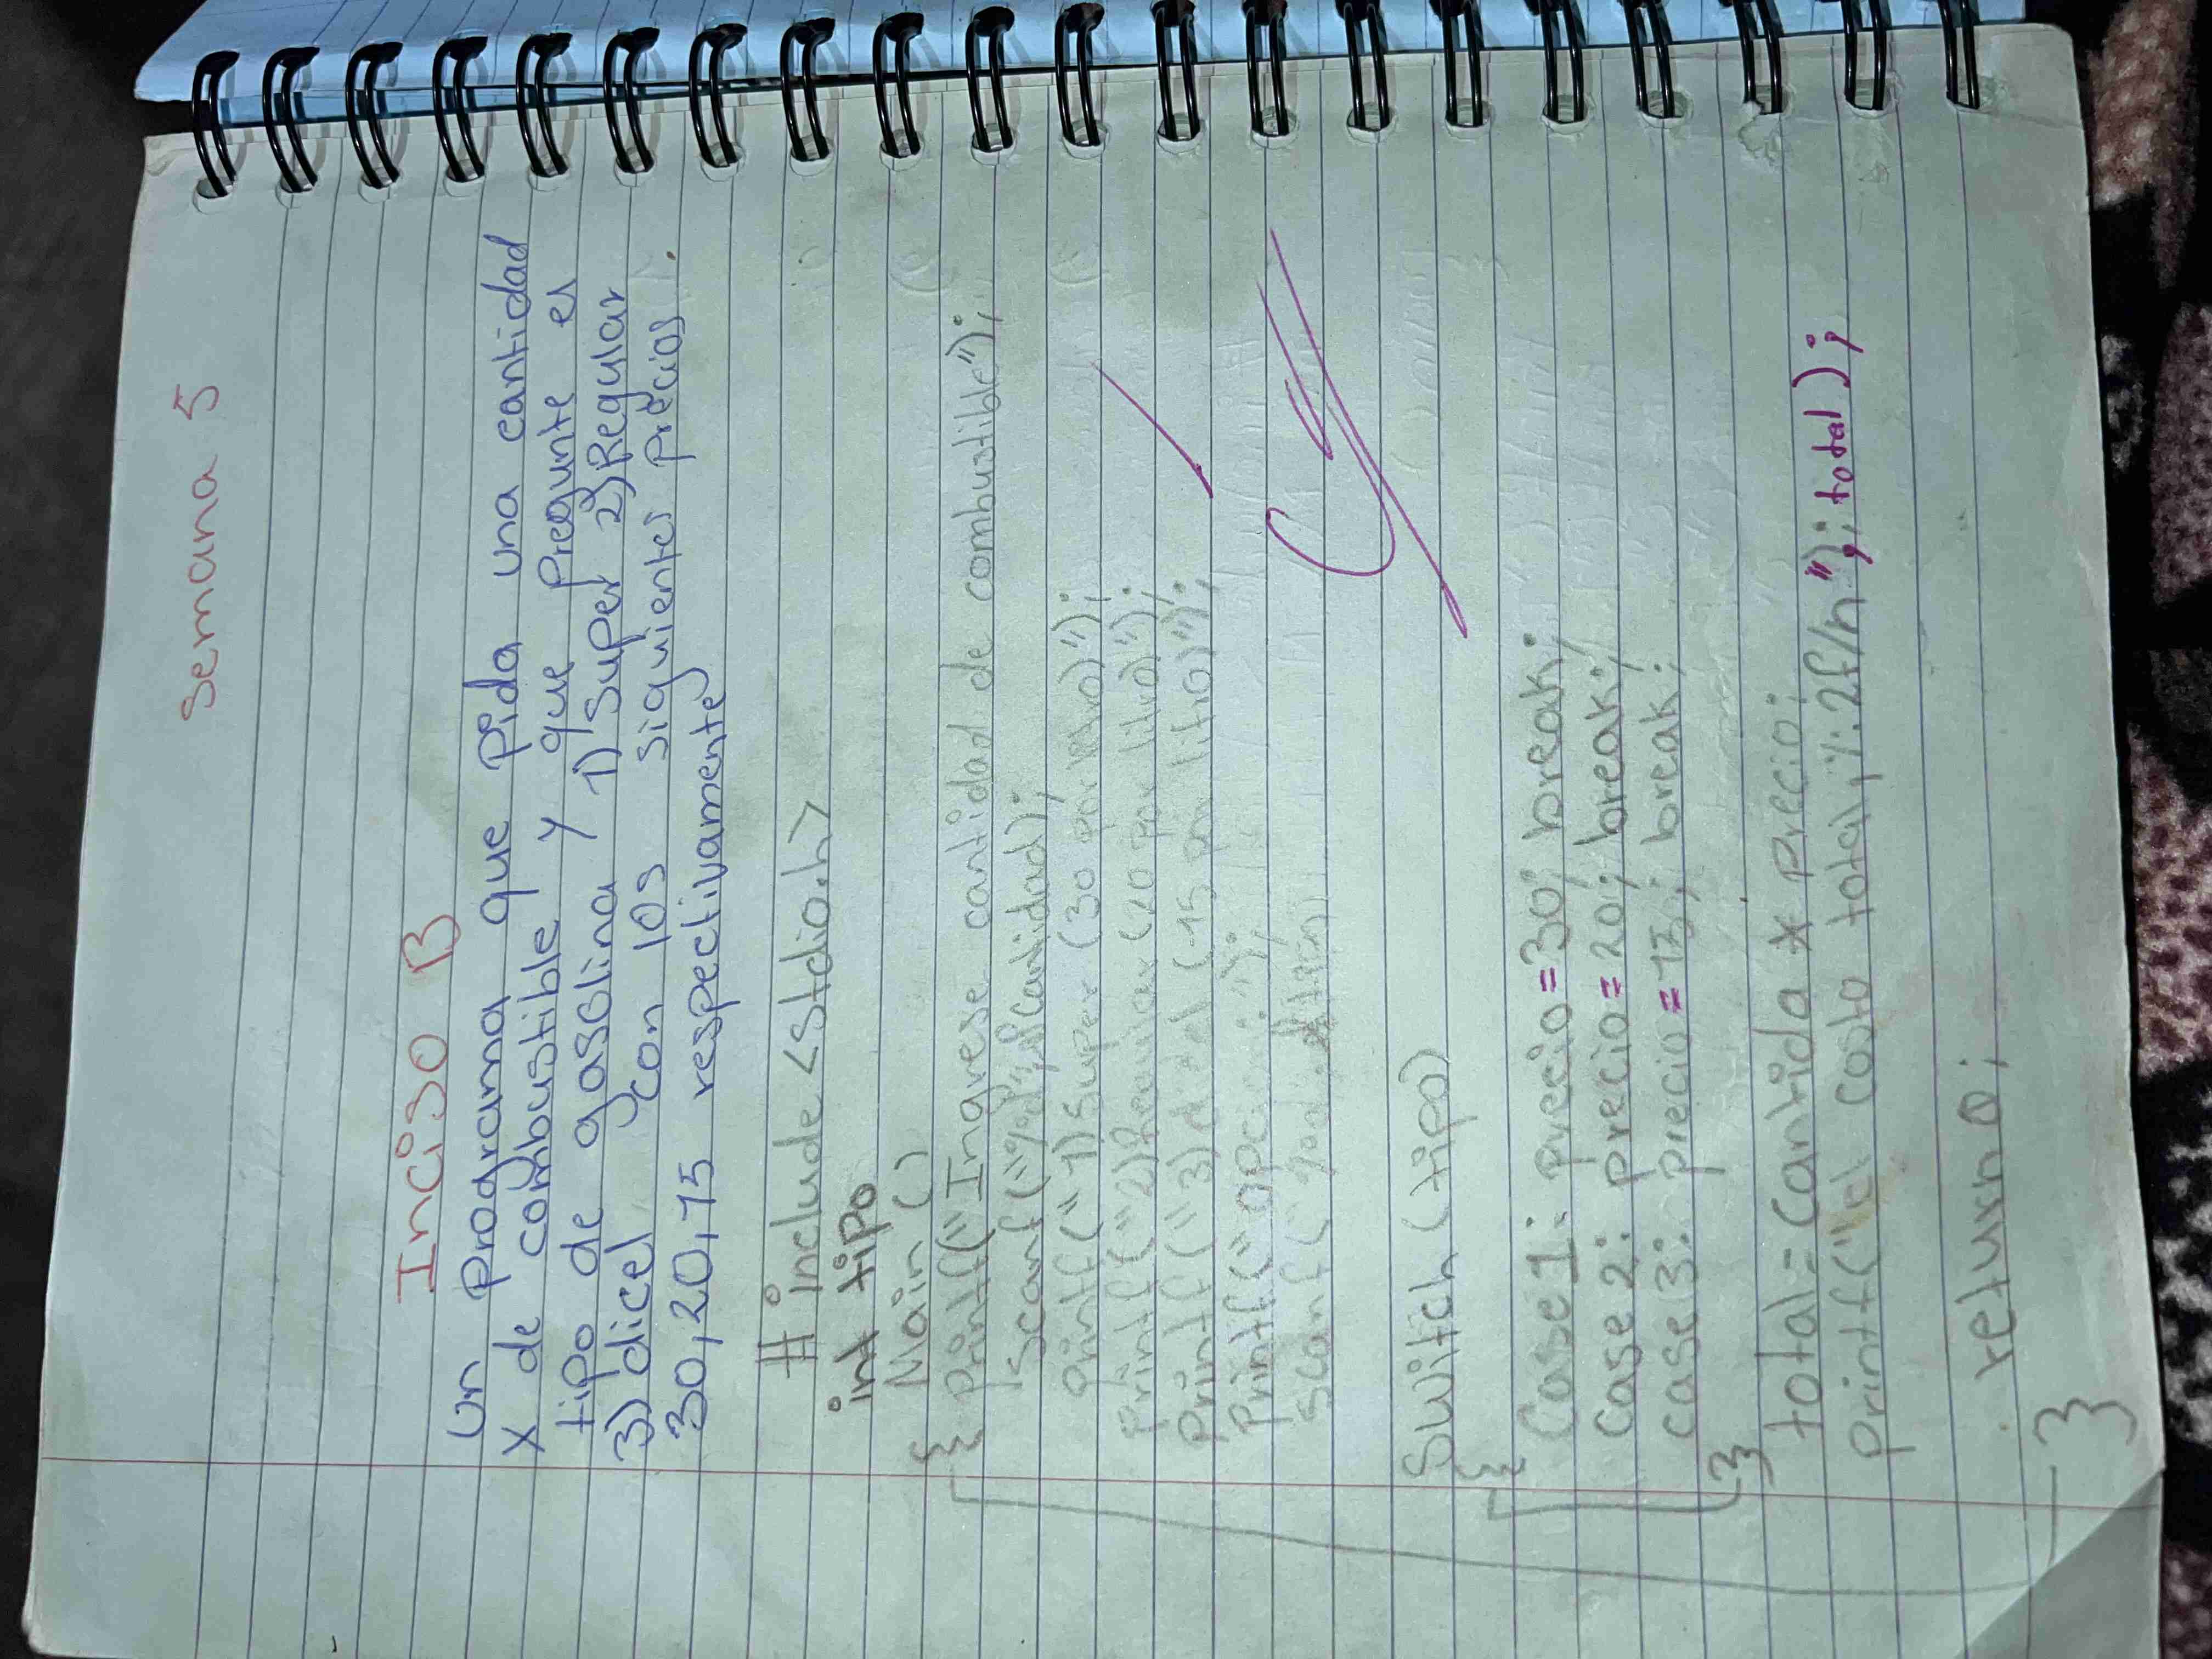 Semana 5
Inciso B
Un Programa que pida una cantidad
X de combustible y que Pregunte el
tipo de gasolina 1) Super 2) Regular
3) dicel con los siguientes precios.
30, 20, 15 respectivamente
# include <stdio.h>
int tipo
Main ()
{ Print f("Ingrese cantidad de combustible");
scanf("%d", &Cantidad);
Print f ("1) Super (30 por litro)");
Print f ("2) Regular (20 por litro)");
Print f ("3) dicel (15 por litro)");
Print f ("opcion: ");
scan f ("
Switch (tipo)
{ Case 1: precio = 30; break;
Case 2: precio = 20; break;
case 3: precio = 15; break;
}
total = Cantida * precio;
Print f ("el costo total, %.2f/n"); ", total);
return 0;
}